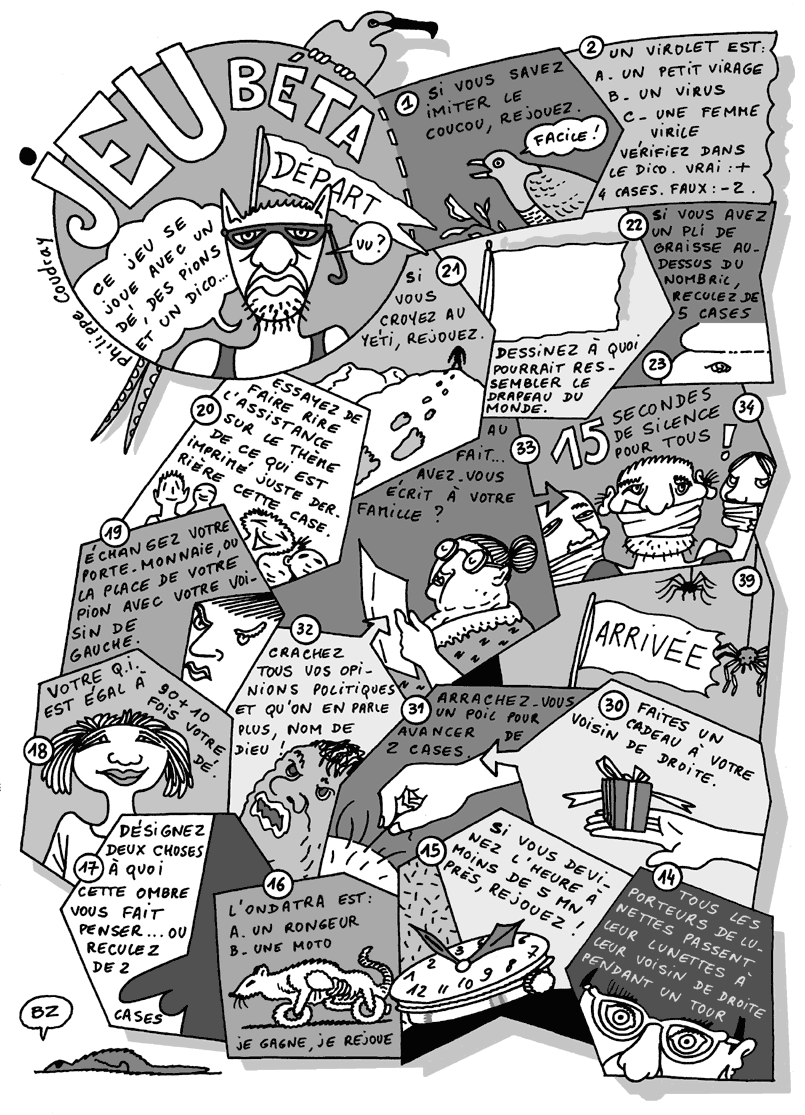 JEU
BÉTA
DÉPART
CE JEU SE
JOUE AVEC UN
DÉ, DES PIONS
ET UN DICO...
VU ?
Philippe Coudray
1
SI VOUS SAVEZ
IMITER LE
COUCOU, REJOUEZ.
FACILE !
2
UN VIROLET EST :
A. UN PETIT VIRAGE
B_ UN VIRUS
C_ UNE FEMME
VIRILE
VÉRIFIEZ DANS
LE DICO. VRAI : +
4 CASES. FAUX : - 2.
21
SI
VOUS
CROYEZ AU
YÉTI, REJOUEZ.
22
DESSINEZ À QUOI
POURRAIT RES-
SEMBLER LE
DRAPEAU DU
MONDE.
SI VOUS AVEZ
UN PLI DE
GRAISSE AU-
DESSUS DU
NOMBRIL,
RECULEZ DE
5 CASES
23
20
ESSAYEZ DE
FAIRE RIRE
L'ASSISTANCE
SUR LE THÈME
DE CE QUI EST
IMPRIMÉ JUSTE DER-
RIÈRE CETTE CASE.
33
AU
FAIT...
AVEZ-VOUS
ÉCRIT À VOTRE
FAMILLE ?
34
15 SECONDES
DE SILENCE
POUR TOUS !
19
ÉCHANGEZ VOTRE
PORTE-MONNAIE, OU
LA PLACE DE VOTRE
PION AVEC VOTRE VOI-
SIN DE
GAUCHE.
39
ARRIVÉE
32
CRACHEZ
TOUS VOS OPI-
NIONS POLITIQUES
ET QU'ON EN PARLE
PLUS, NOM DE
DIEU !
18
VOTRE Q.I.
EST ÉGAL À
90+10
FOIS VOTRE
DÉ.
31
ARRACHEZ-VOUS
UN POIL POUR
AVANCER DE
2 CASES
30
FAITES UN
CADEAU À VOTRE
VOISIN DE DROITE.
17
DÉSIGNEZ
DEUX CHOSES
À QUOI
CETTE OMBRE
VOUS FAIT
PENSER... OU
RECULEZ
DE 2
CASES
16
L'ONDATRA EST :
A. UN RONGEUR
B_ UNE MOTO
JE GAGNE, JE REJOUE
15
SI VOUS DEVI-
NEZ L'HEURE À
MOINS DE 5 MN
PRÈS, REJOUEZ !
1 2 3 4 5 6 7 8 9 10 11 12
14
TOUS LES
PORTEURS DE LU-
NETTES PASSENT
LEUR LUNETTES À
LEUR VOISIN DE DROITE
PENDANT UN TOUR
BZ